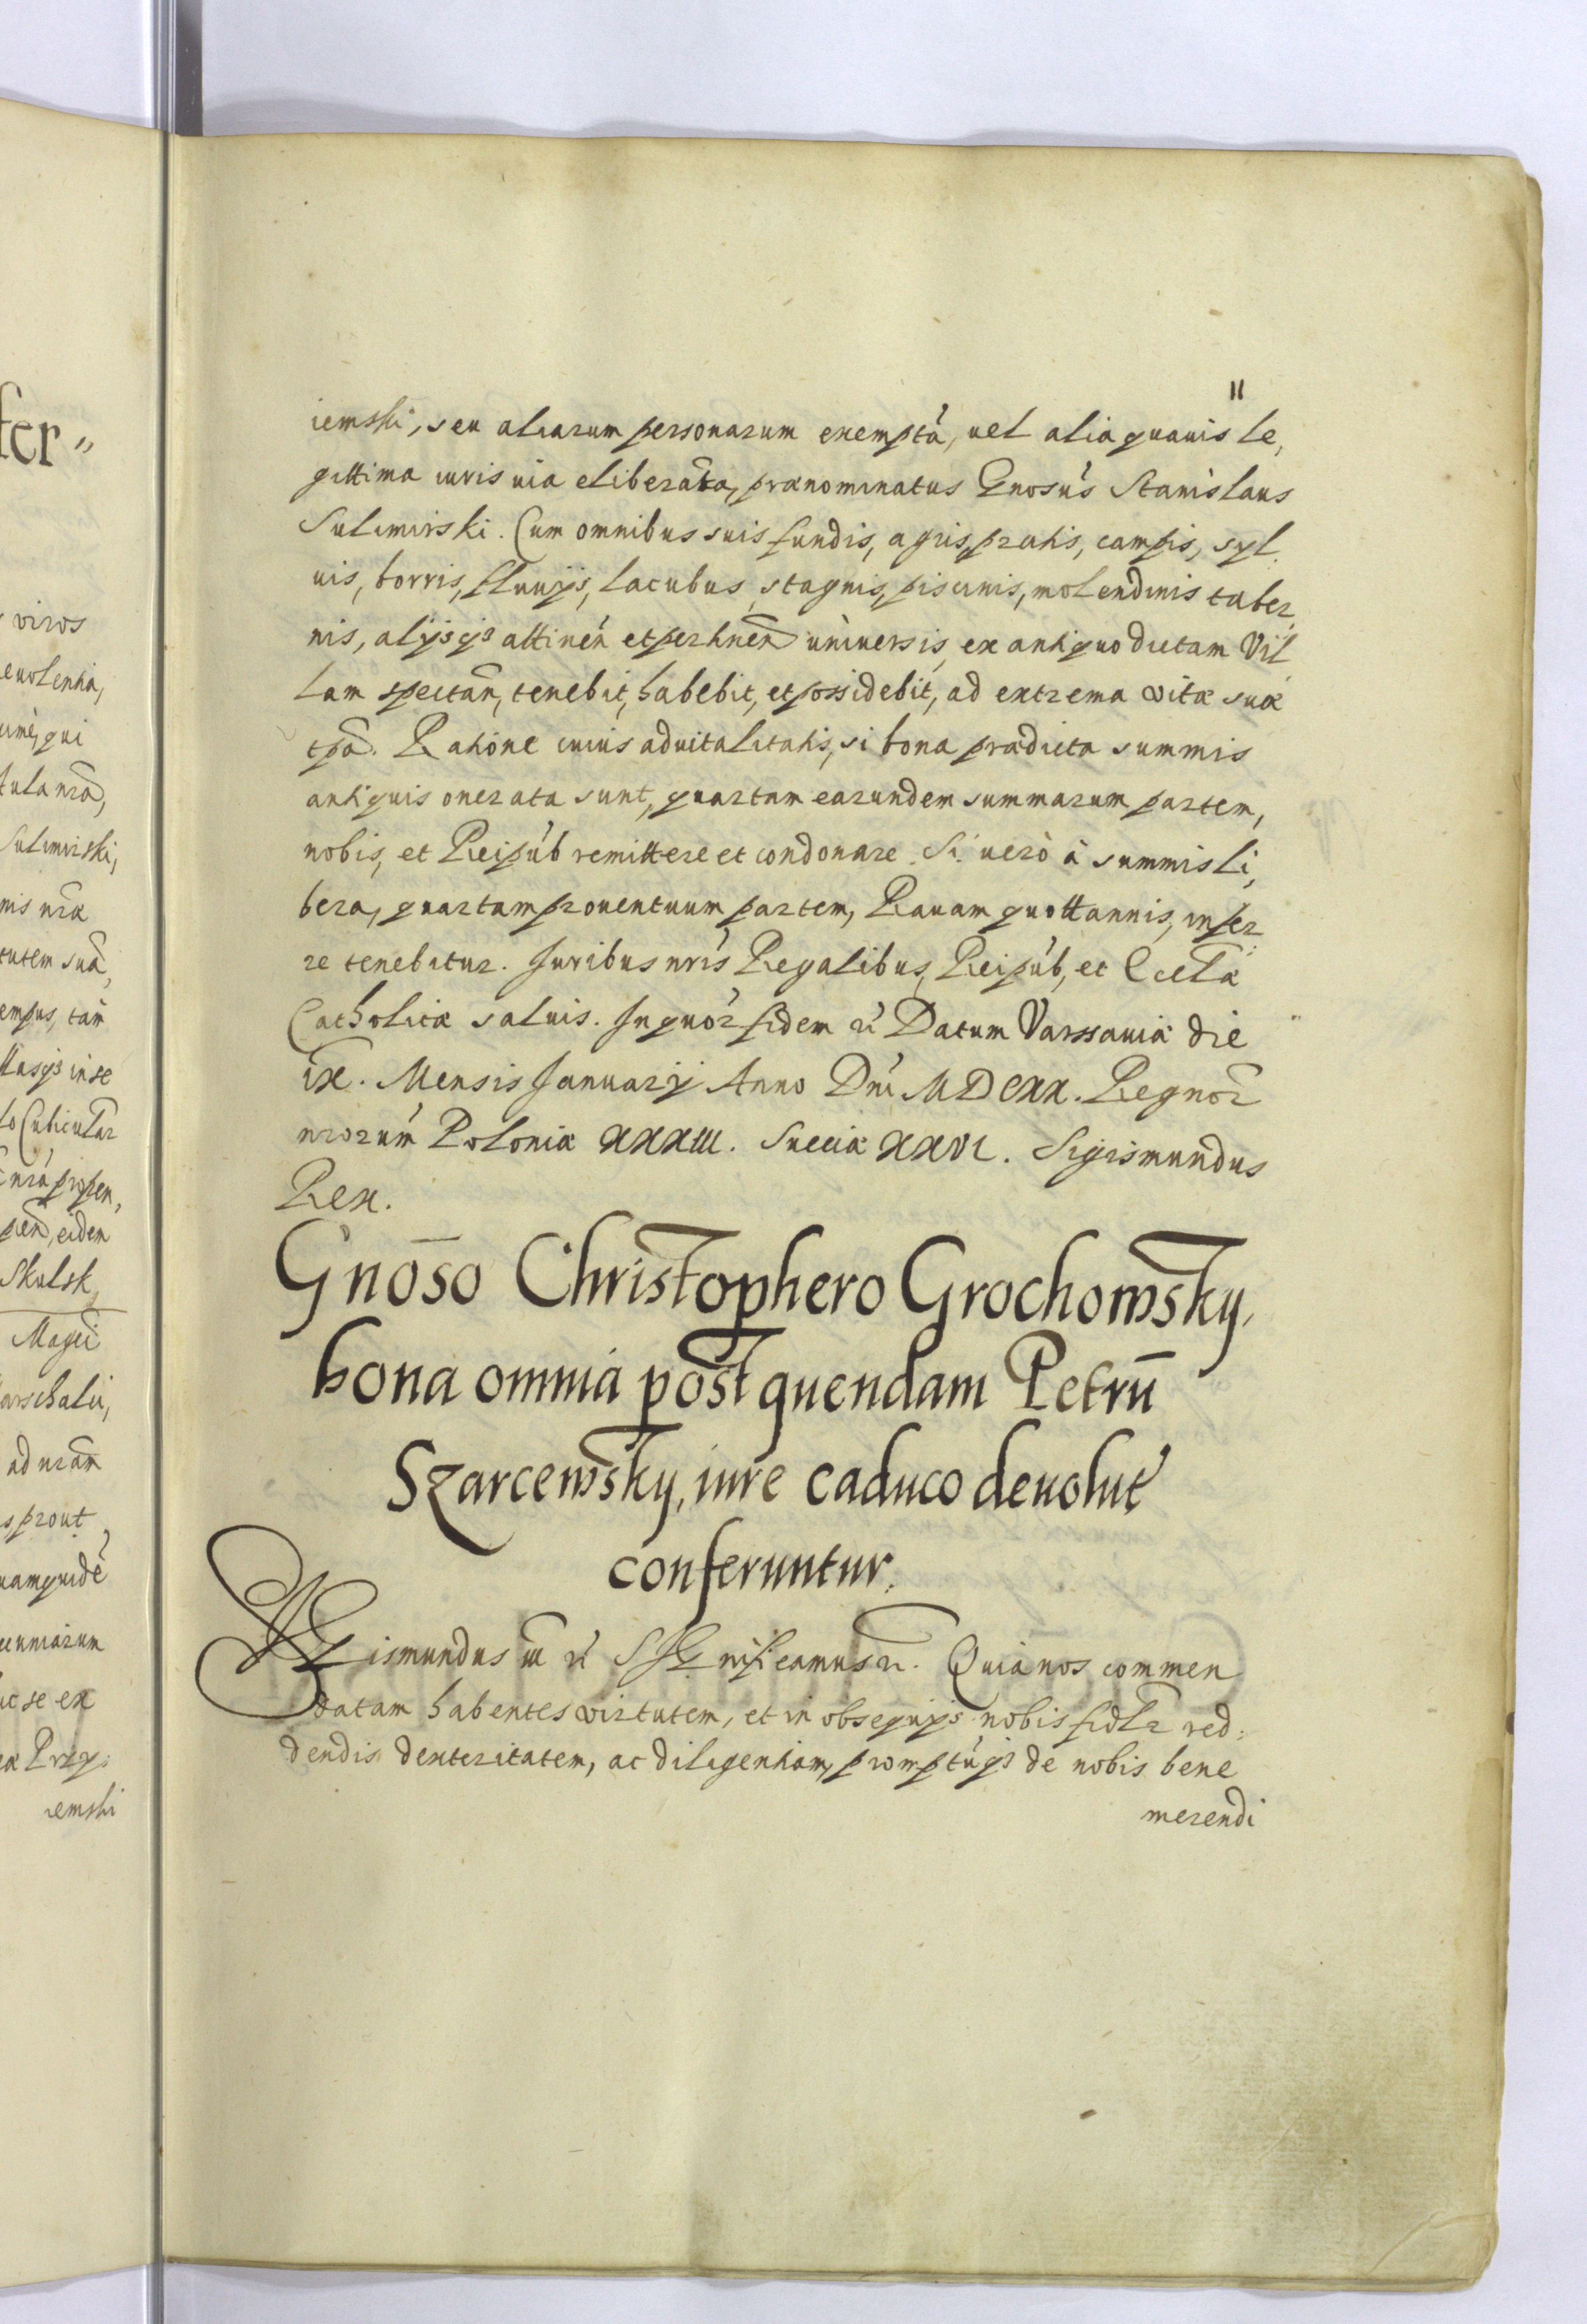 viros
euolentia,
umè, qui
tulanrã,
Sulimirski,
nis nrã
tutem suã,
empus, tam
lo Cubicular
nrã propen,
pen̄, eidem
Skulsk
Magci
arschalci,
ad nram
s prout
uamquidē
ecuniarum
ac se ex
ex Przy:
iemski
fer„
11
iemski, seu aliarum personarum exempta, uel alia quauis le,
gittima iuris uia eliberata, prænominatus Gnosus Stanislaus
Sulimirski. Cum omnibus suis fundis, agris, pratis, campis, syl
uis, borris, fluuijs, lacubus, stagnis, piscinis, molendinis taber,
nis, alijsq3 attinen̄ et pertinen̄ uniuersis, ex antiquo dictam Vil
lam spectan̄, tenebit, habebit, et possidebit, ad extrema vitæ suæ
tpã. Ratione cuius aduitalitatis, si bona prædicta summis
antiquis onerata sunt, quartam earundem summarum partem,
nobis, et Reipub remittere et condonare. Si uerò à summis li,
bera, quartam prouentuum partem, Rauam quottannis, infer
re tenebitur. Juribus nris Regalibus, Reipub, et Ecclã
Catholicæ saluis. In quor fidem r̃ Datum Varssauiæ die
ix. Mensis Januarij Anno Dni MDCXX. Regnor
nrorum Poloniæ XXXIII. Sueciæ XXVI. Sigismundus
Rex.
Gnōso Christophero Grochowsky,
bona omnia post quendam Petrū
Szarcewsky, iure caduco deuolut
conferuntur.
Sigismundus III r̃ Significamus r̃. Quia nos commen
datam habentes virtutem, et in obsequijs nobis fidlr red:
dendis dexteritatem, ac diligentiam, promptuq3 de nobis bene
merendi